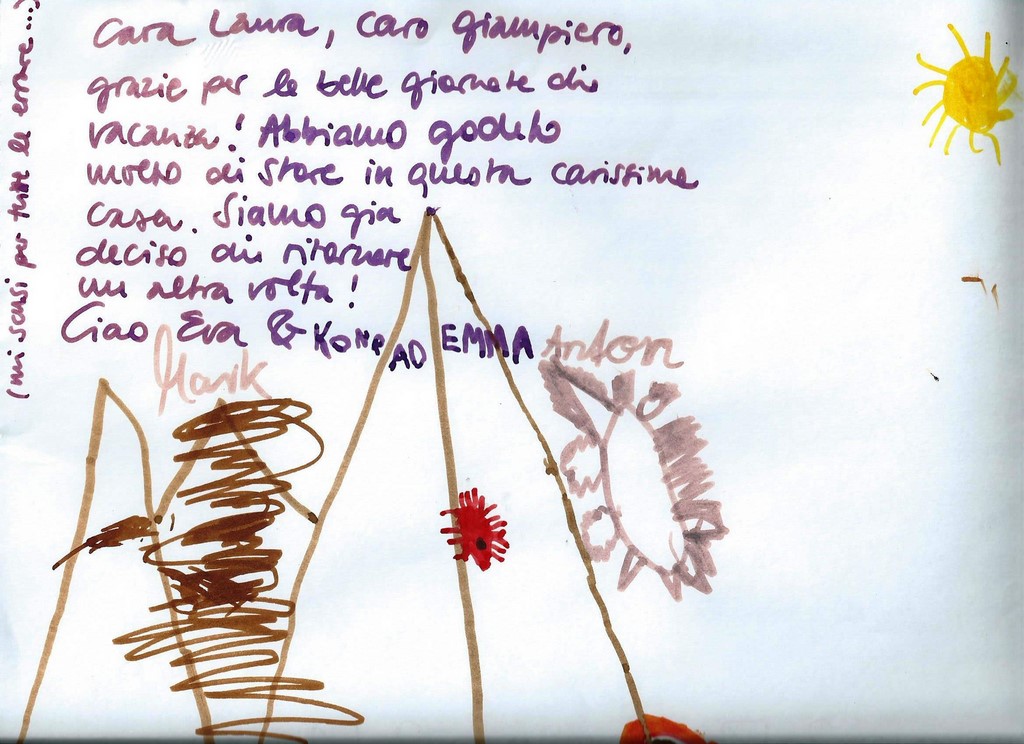 Cara Laura, caro Giampiero,
grazie per le belle giornate di
vacanza! Abbiamo goduto
molto di stare in questa carissima
casa. Siamo gia
deciso di ritornare
un altra volta!
Ciao Eva & KONRAD EMMA Anton
Marik
(mi scusi per tutte le errare...)